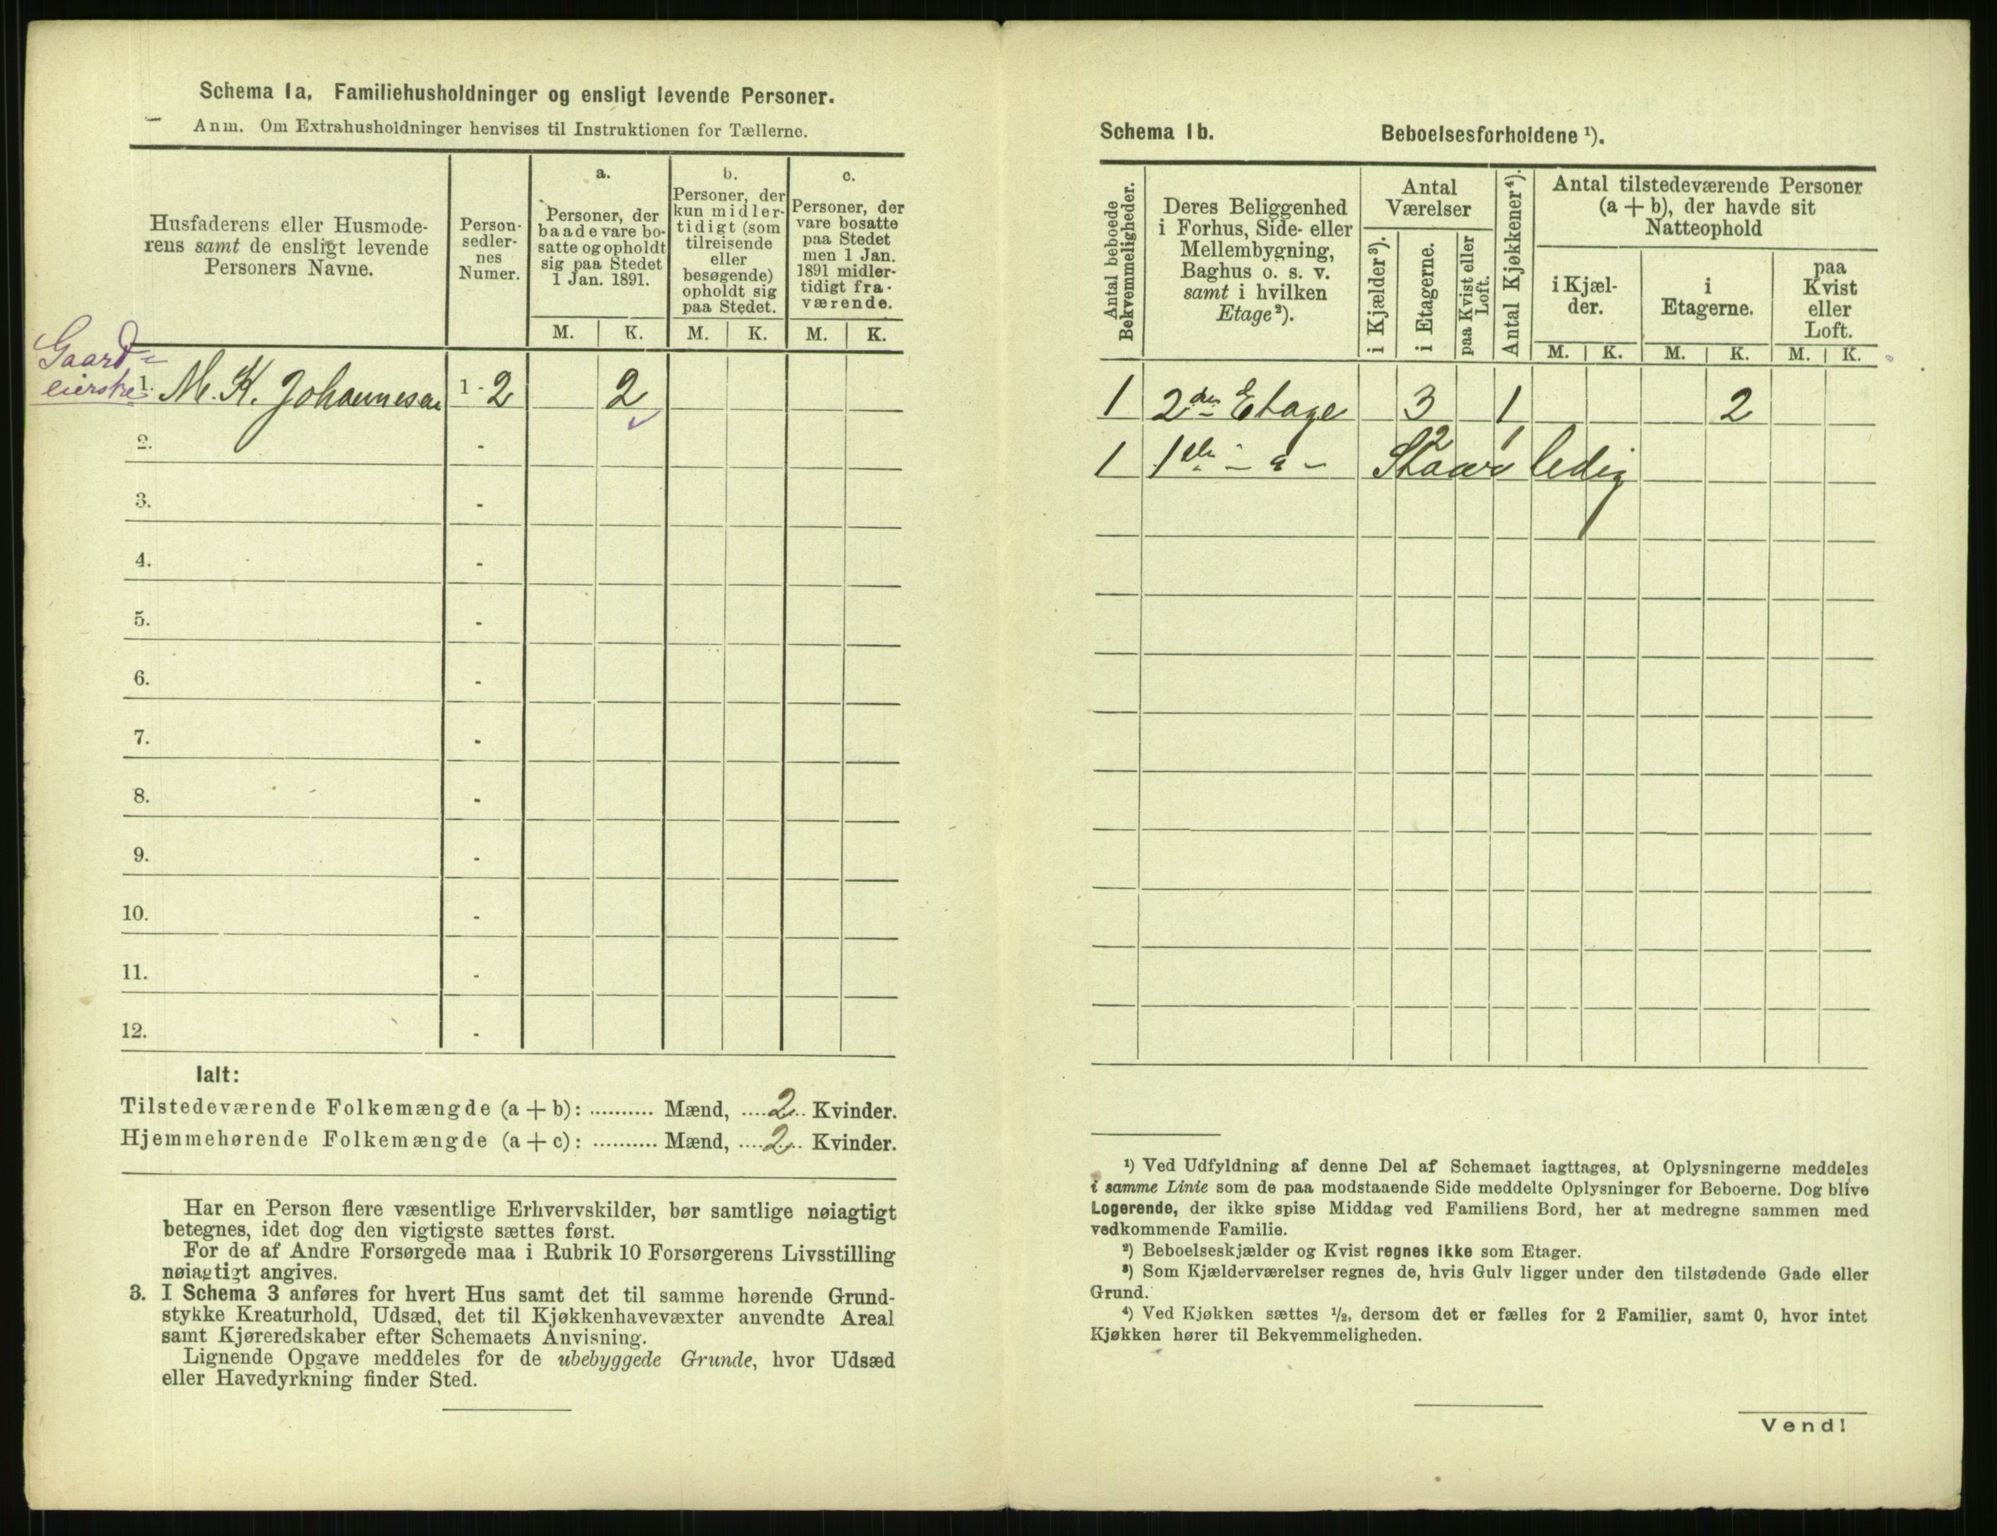 Schema 1a. Familiehusholdninger og ensligt levende Personer.
Anm. Om Extrahusholdninger henvises til Instruktionen for Tællerne.
Husfaderens eller Husmode-
rens samt de ensligt levende
Personers Navne.
Person-
sedler-
nes
Numer.
a.
Personer, der
baade vare bo-
satte og opholdt
sig paa Stedet
1 Jan. 1891.
b.
Personer, der
kun midler-
tidigt (som
tilreisende
eller
besøgende)
opholdt sig
paa Stedet.
c.
Personer, der
vare bosatte
paa Stedet
men 1 Jan.
1891 midler-
tidigt fra-
værende.
M. K. M. K. M. K.
Gaard-
eierske 1. M. K. Johannesen 1 - 2 2
2. -
3. -
4. -
5. -
6. -
7. -
8. -
9. -
10. -
11. -
12. -
Ialt:
Tilstedeværende Folkemængde (a + b): .......... Mænd, ....2... Kvinder.
Hjemmehørende Folkemængde (a + c): .......... Mænd, ....2... Kvinder.
Har en Person flere væsentlige Erhvervskilder, bør samtlige nøiagtigt
betegnes, idet dog den vigtigste sættes først.
For de af Andre Forsørgede maa i Rubrik 10 Forsørgerens Livsstilling
nøiagtigt angives.
3. I Schema 3 anføres for hvert Hus samt det til samme hørende Grund-
stykke Kreaturhold, Udsæd, det til Kjøkkenhavevæxter anvendte Areal
samt Kjøreredskaber efter Schemaets Anvisning.
Lignende Opgave meddeles for de ubebyggede Grunde, hvor Udsæd
eller Havedyrkning finder Sted.
Schema 1b. Beboelsesforholdene ¹).
Antal beboede
Bekvemmeligheder.
Deres Beliggenhed
i Forhus, Side- eller
Mellembygning,
Baghus o. s. v.
samt i hvilken
Etage²).
Antal
Værelser
i Kjælder³).
i Etagerne.
paa Kvist eller
Loft.
Antal Kjøkkener⁴).
Antal tilstedeværende Personer
(a + b), der havde sit
Natteophold
i Kjæl-
der.
i
Etagerne.
paa
Kvist
eller
Loft.
M. K. M. K. M. K.
1 2den Etage 3 1 2
2 1
1 1ste - " - Staar ledig
¹) Ved Udfyldning af denne Del af Schemaet iagttages, at Oplysningerne meddeles
i samme Linie som de paa modstaaende Side meddelte Oplysninger for Beboerne. Dog blive
Logerende, der ikke spise Middag ved Familiens Bord, her at medregne sammen med
vedkommende Familie.
²) Beboelseskjælder og Kvist regnes ikke som Etager.
³) Som Kjælderværelser regnes de, hvis Gulv ligger under den tilstødende Gade eller
Grund.
⁴) Ved Kjøkken sættes ½, dersom det er fælles for 2 Familier, samt 0, hvor intet
Kjøkken hører til Bekvemmeligheden.
Vend!